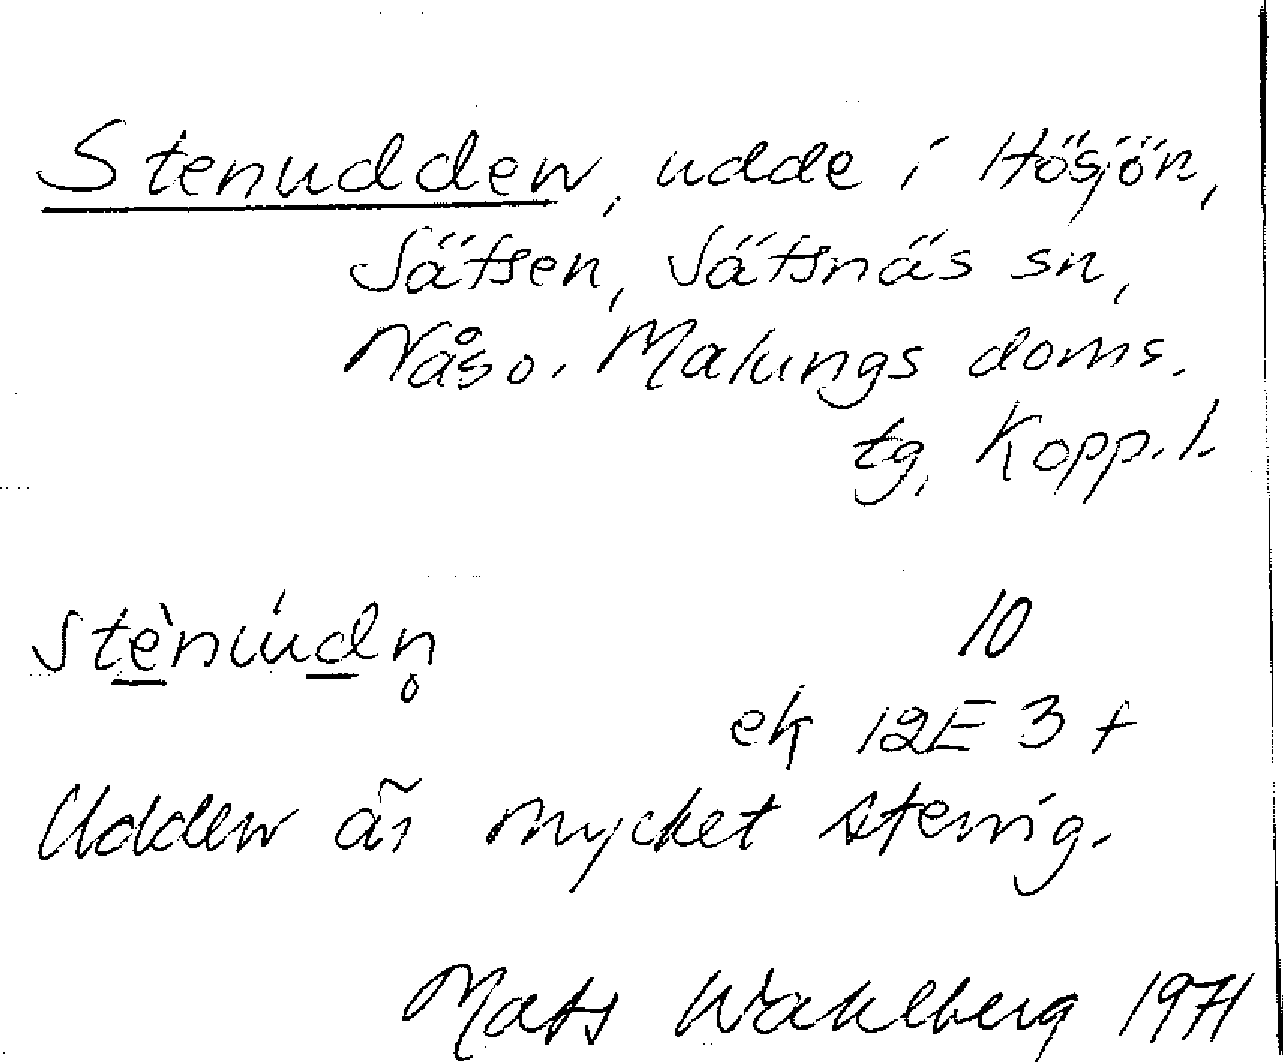 Stenudden, udde i Hösjön,
Sätsen, Sätsnäs sn,
Nås o. Malungs doms.
tg, Kopp. l.
stè̲núd̲n̥
10
ek 12E 3 f
Udden är mycket stenig.
Mats Wahlberg 1971